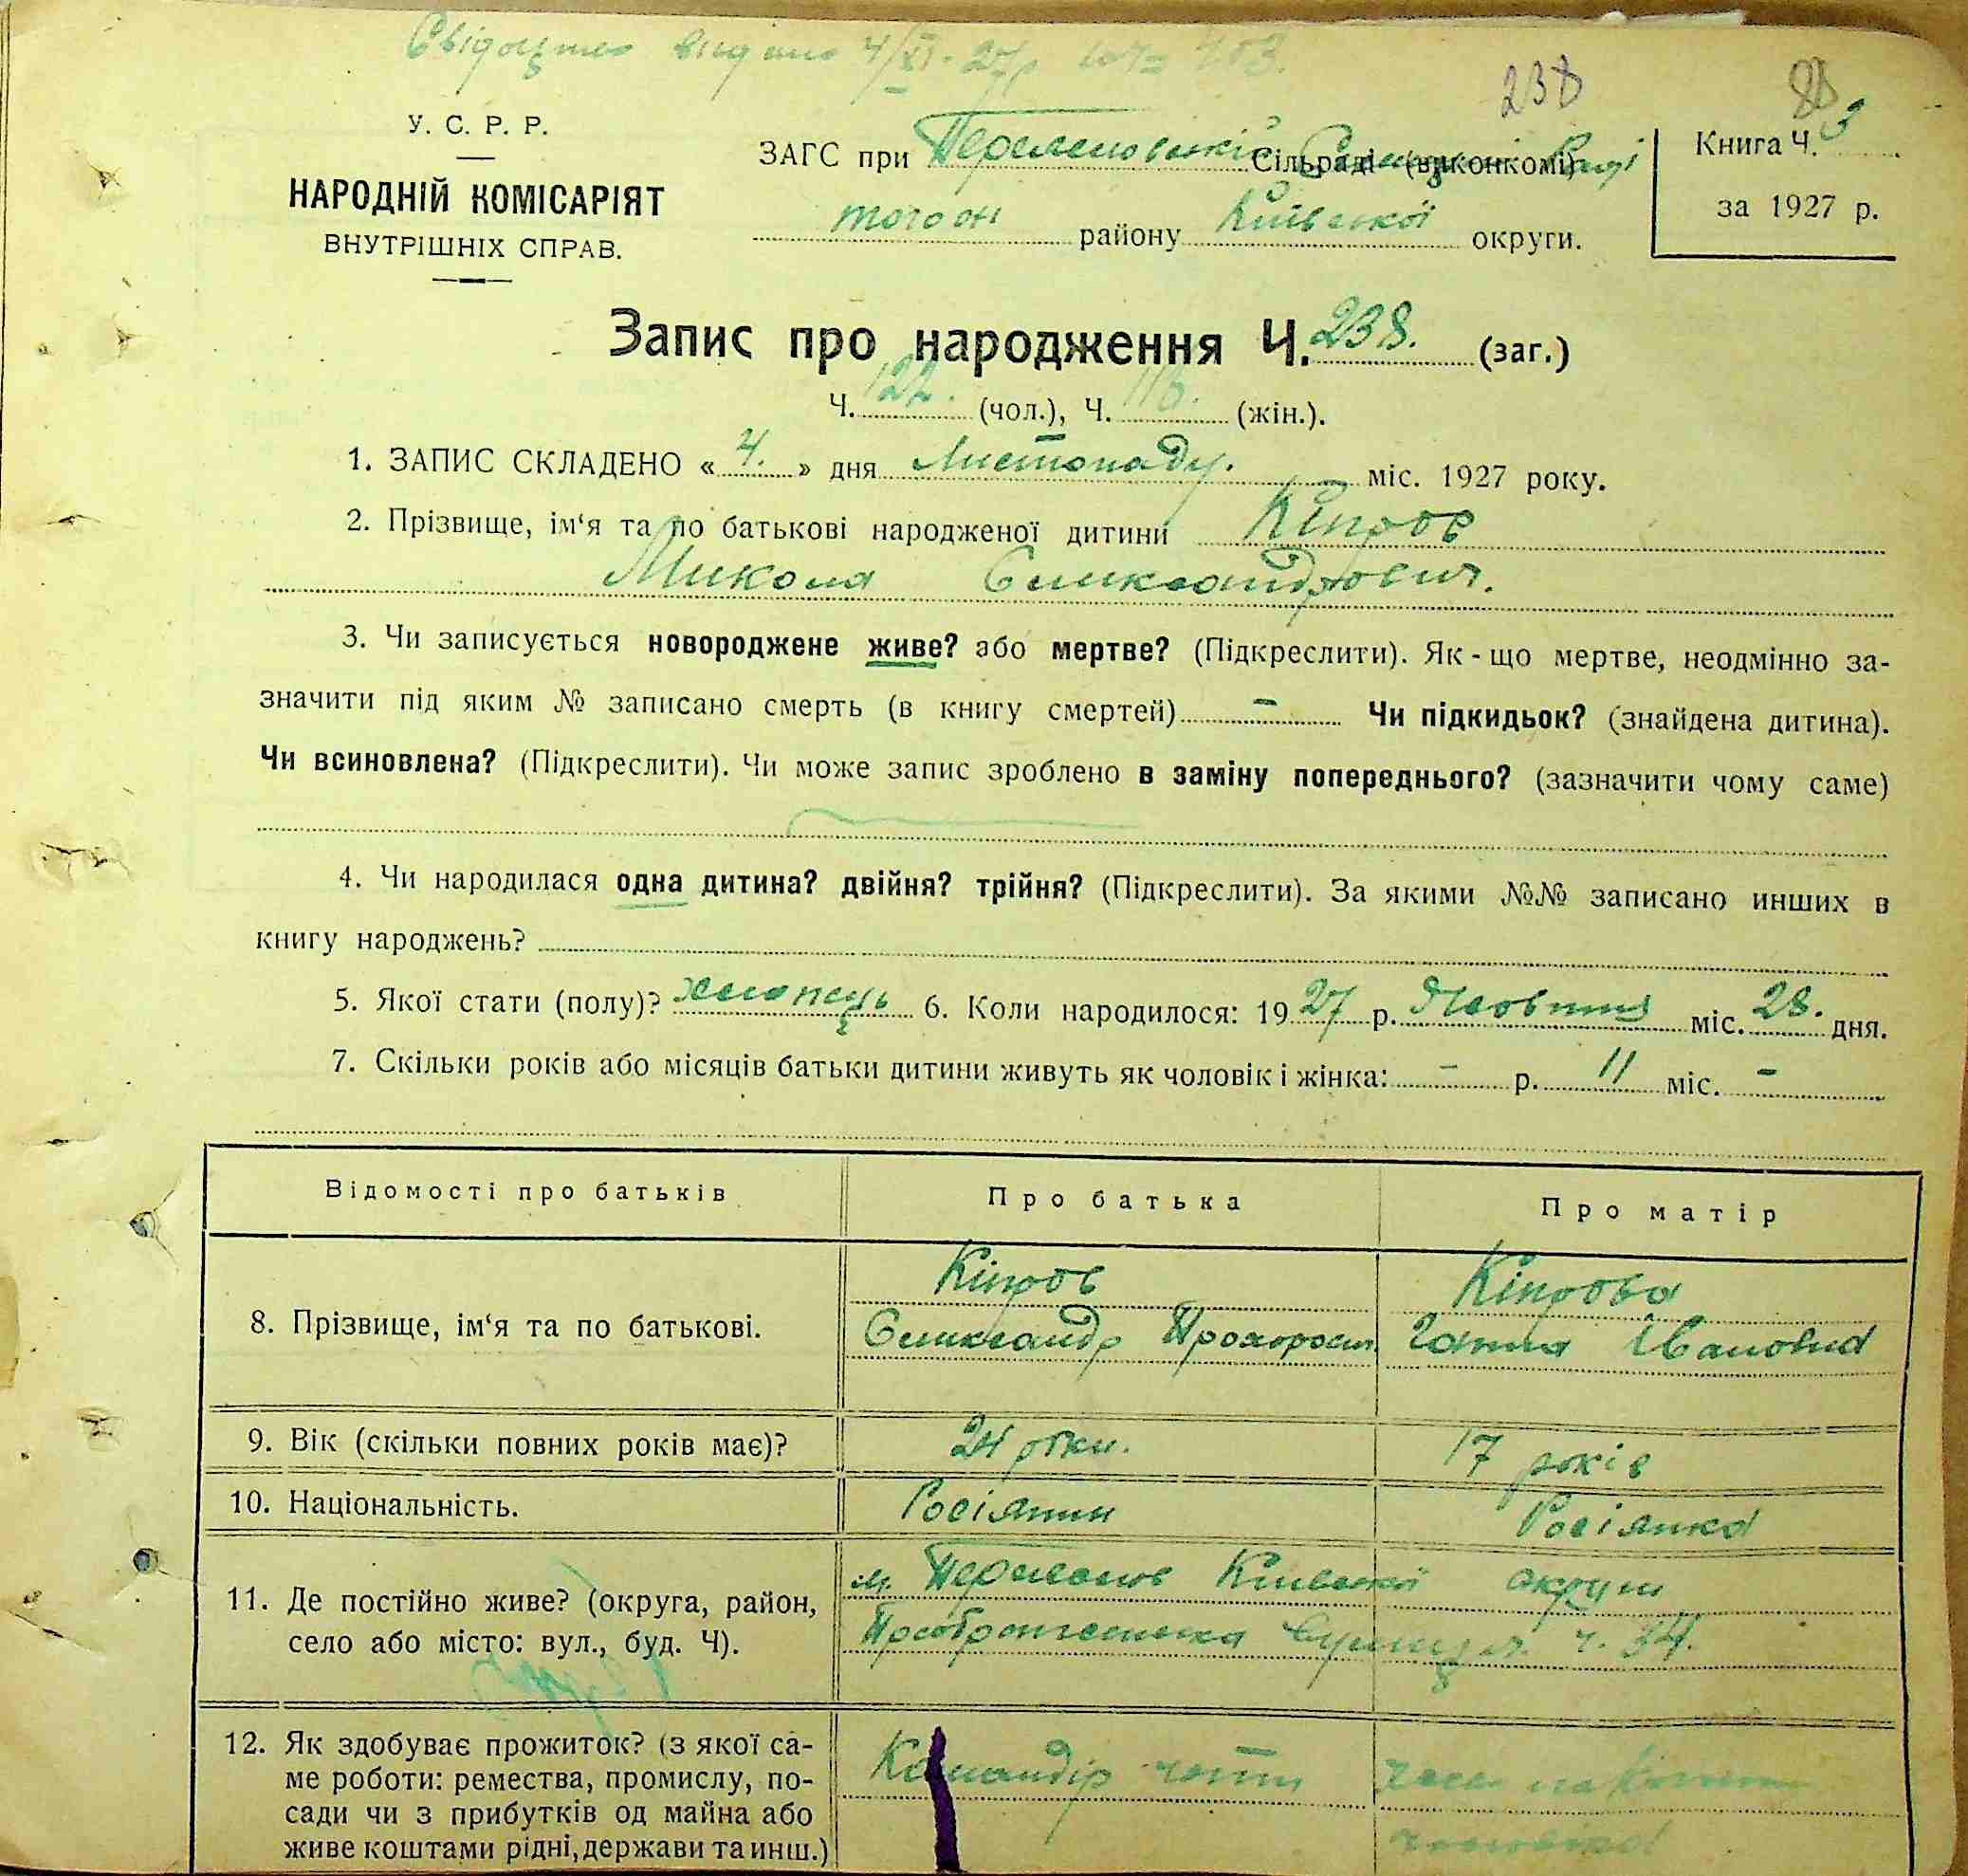 Свідоцтво видано 4/XI-27р за № 403.
238
У. С. Р. Р.
НАРОДНІЙ КОМІСАРІЯТ
ВНУТРІШНІХ СПРАВ.
ЗАГС при Сільраді (виконкомі)
того ж району Київської округи.
Книга Ч. 3
за 1927 р.
Запис про народження Ч. 238. (заг.)
Ч. 122. (чол.), Ч. 116. (жін.).
1. ЗАПИС СКЛАДЕНО « 4. » дня Листопаду. міс. 1927 року.
2. Прізвище, ім‘я та по батькові народженої дитини Кіпров
Микола Олександрович.
3. Чи записується новороджене живе? або мертве? (Підкреслити). Як-що мертве, неодмінно за-
значити під яким № записано смерть (в книгу смертей) – Чи підкидьок? (знайдена дитина).
Чи всиновлена? (Підкреслити). Чи може запис зроблено в заміну попереднього? (зазначити чому саме)
4. Чи народилася одна дитина? двійня? трійня? (Підкреслити). За якими №№ записано инших в
книгу народжень?
5. Якої стати (полу)? хлопець 6. Коли народилося: 1927 р. Жовтня міс. 28. дня.
7. Скільки років або місяців батьки дитини живуть як чоловік і жінка: – р. 11 міс. –
Відомості про батьків
Про батька
Про матір
8. Прізвище, ім‘я та по батькові.
Кіпров
Олександр Прохоров.
Кіпрова
Ганна Івановна
9. Вік (скільки повних років має)?
24 роки.
17 років
10. Національність.
Росіянин
Росіянка
11. Де постійно живе? (округа, район,
село або місто: вул., буд. Ч).
м. Київської округи
вулиця. ч. 34.
12. Як здобуває прожиток? (з якої са-
ме роботи: ремества, промислу, по-
сади чи з прибутків од майна або
живе коштами рідні, держави та инш.)
Командір
чоловіка